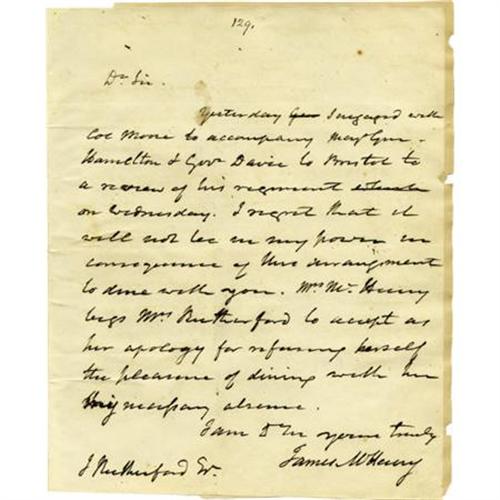 129.
Dr Sir.
Yesterday I engaged with
Col Moore to accompany Majr Gen.
Hamilton & Govr Davie to Bristol to
a review of his regiment
on Wednesday. I regret that it
will not be in my power in
consequence of this arrangement
to dine with you. Mrs McHenry
begs Mrs Rutherford to accept as
her apology for refusing herself
the pleasure of dining with her
my necessary absence.
I am Dr Sir yours truly
James McHenry
J Rutherford Esr.